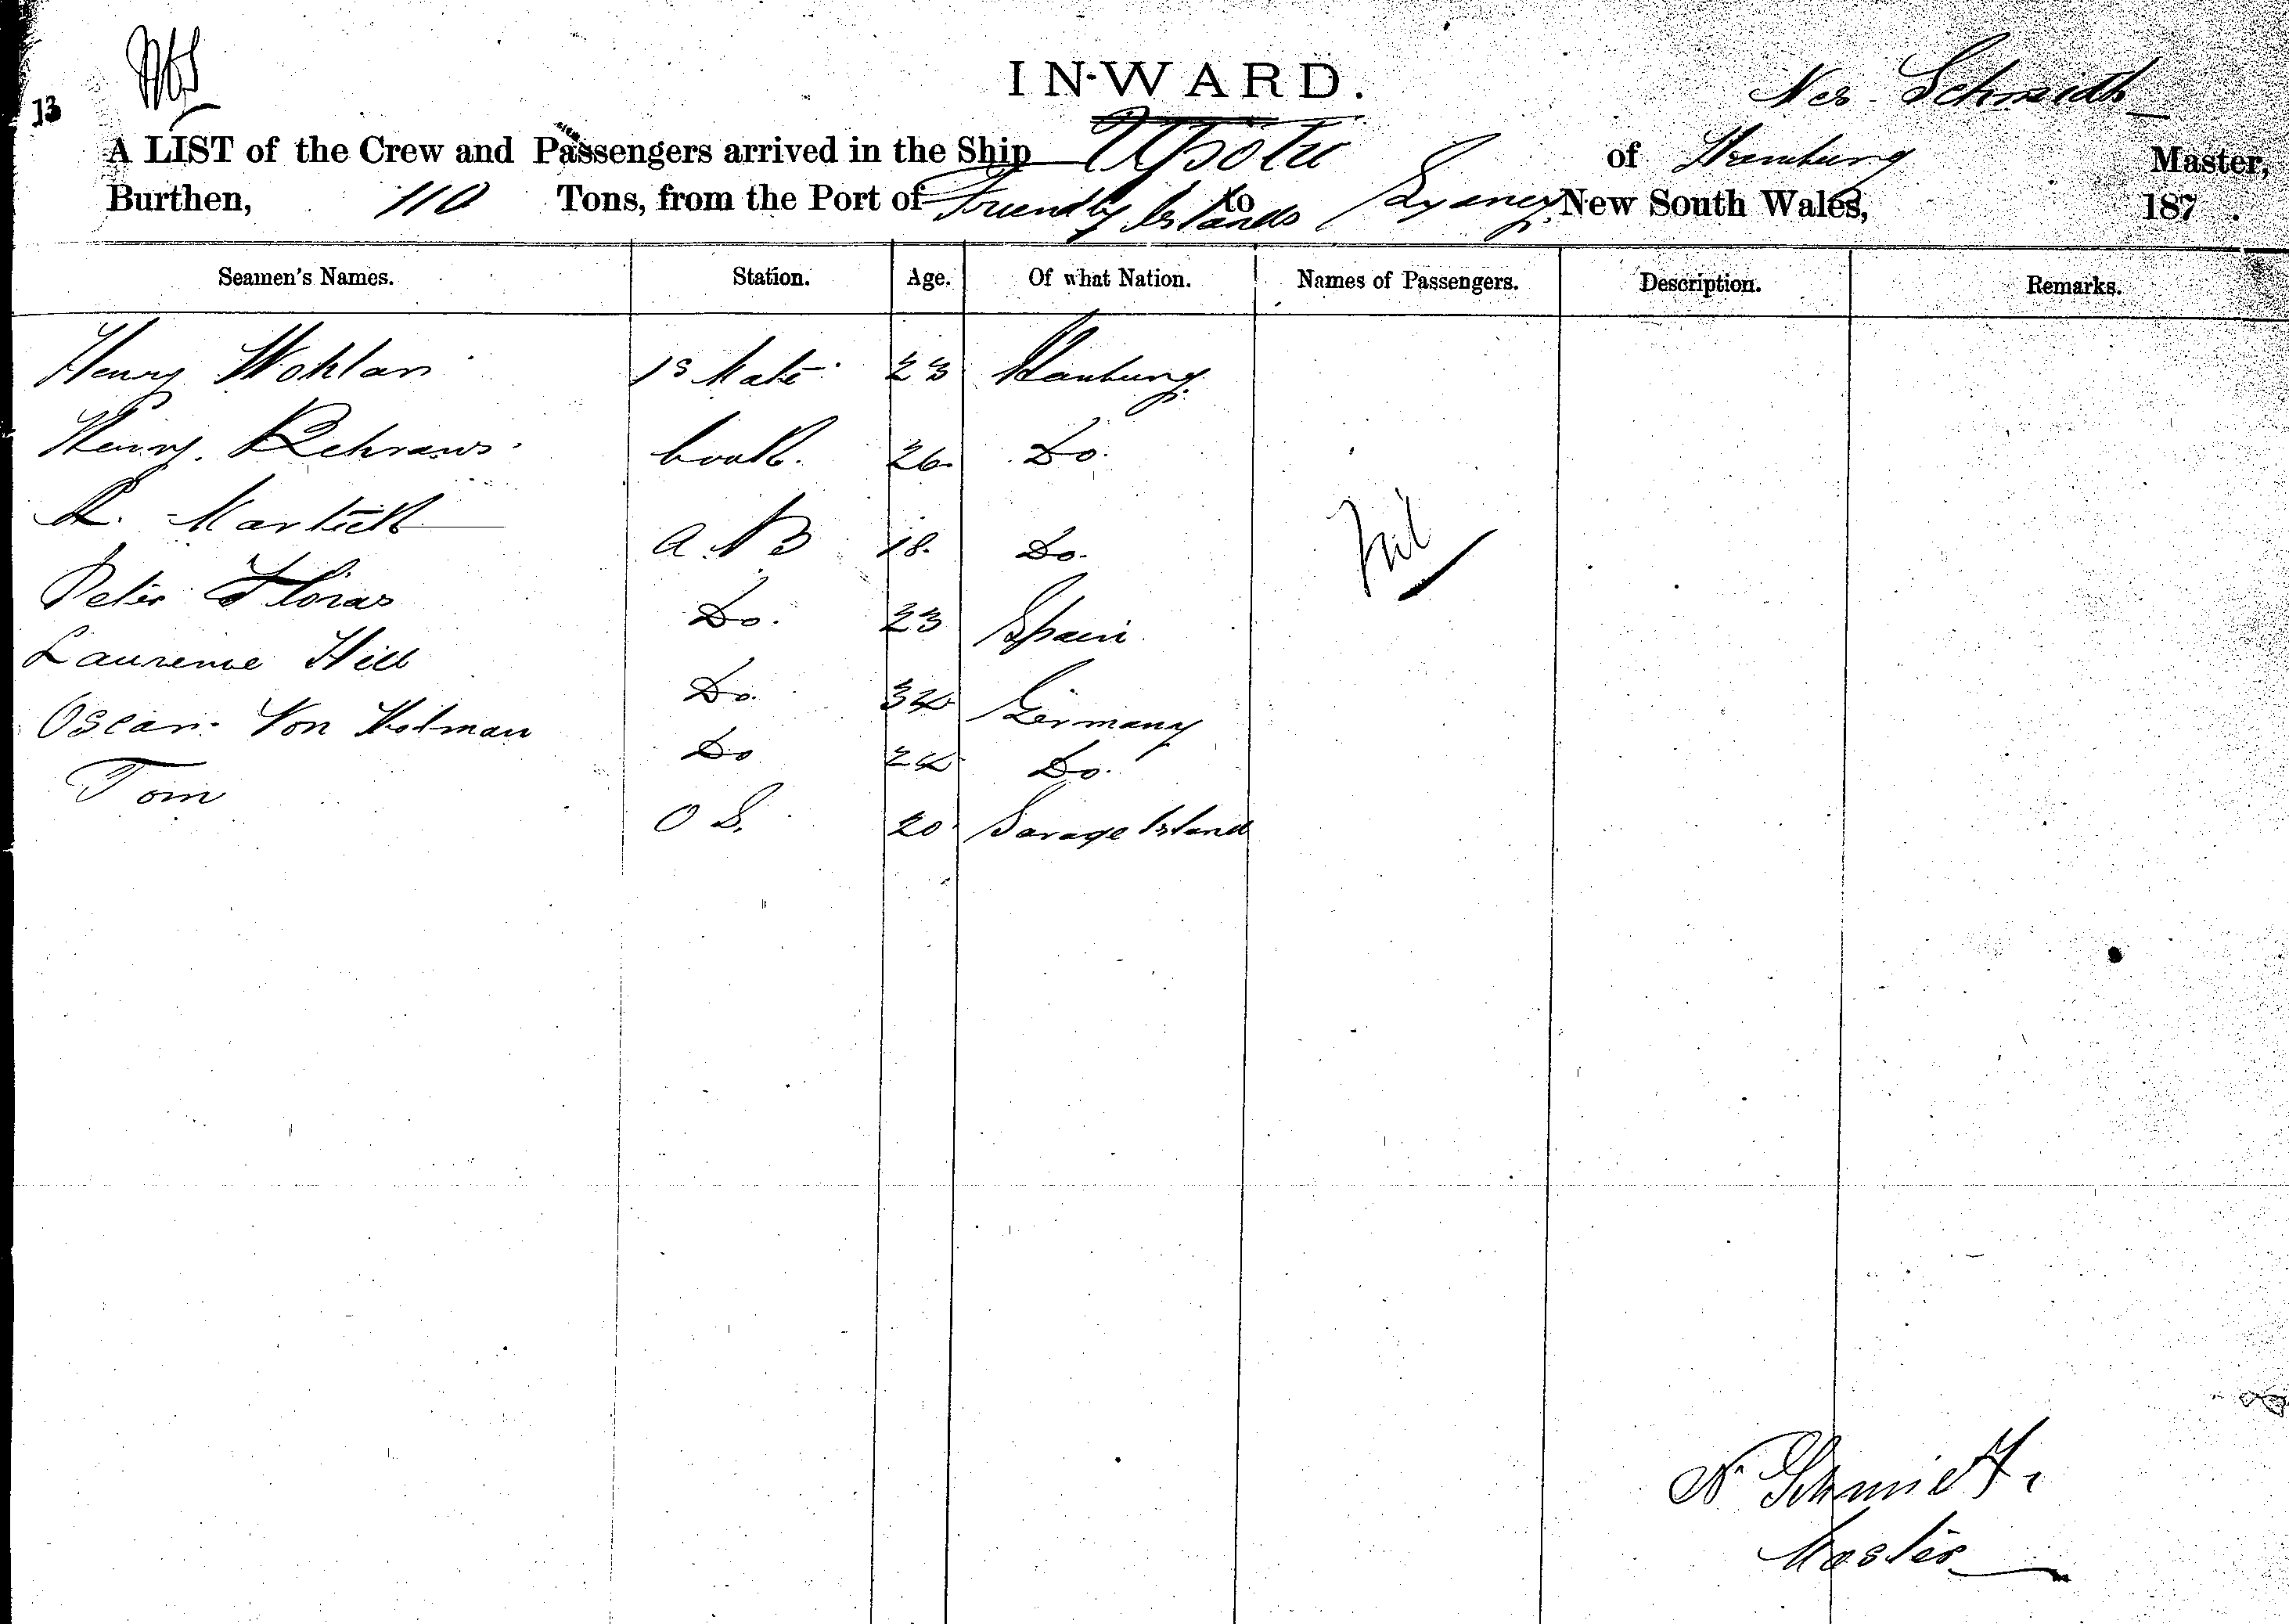 13
IN-WARD.
Nes Schmidt
A LIST of the Crew and Passengers arrived in the Ship Upolu of Hamburg Master,
Burthen, 110 Tons, from the Port of Friendly Islands to Sydney New South Wales, 187 .
Seamen's Names. Station. Age. Of what Nation. Names of Passengers. Description. Remarks.
Henry Wohlan 1s Mate 23 Hamburg
Henry Behrans Cook 26 Do.
Martick A.B 18 Do. Nil
Peter Floras Do. 23 Spain
Laurence Hill Do. 34 Germany
Oscar Von Holman Do 24 Do.
Tom O S. 20 Savage Island
N Schmidt.
Master